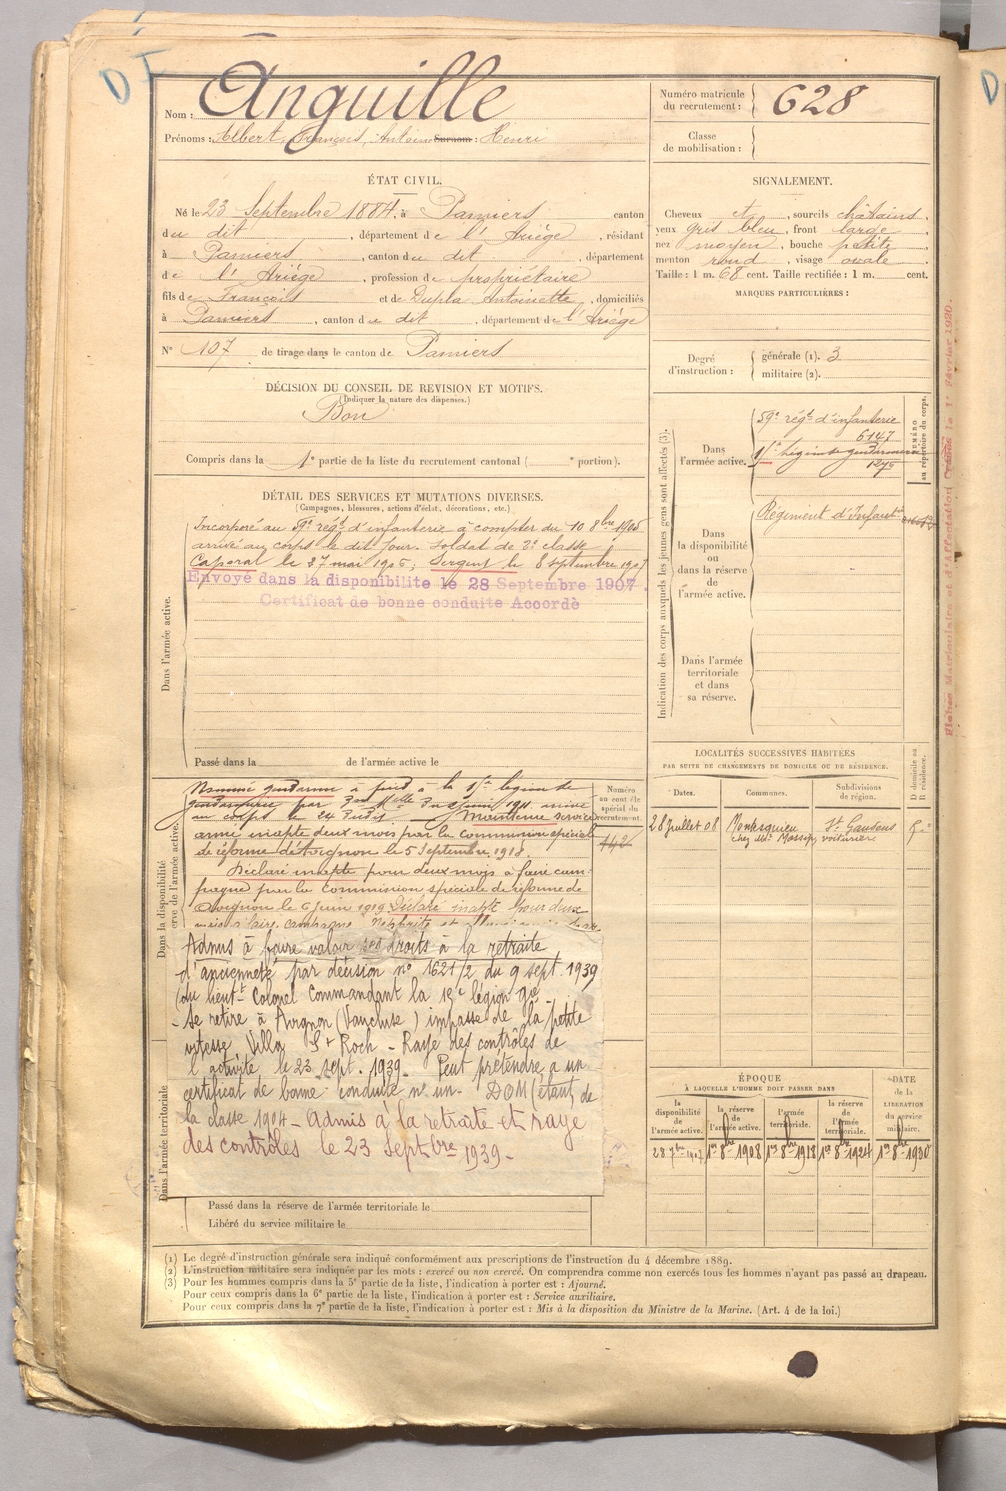 DI
Nom : Anguille
Prénoms : Albert, François, Antoine Surnom : Henri
Numéro matricule du recrutement : 628
Classe de mobilisation :
ÉTAT CIVIL.
Né le 23 Septembre 1884, à Pamiers canton
du dit, département de l'Ariège, résidant
à Pamiers, canton du dit, département
de l'Ariège, profession de propriétaire
fils de François et de Dupla Antoinette, domiciliés
à Pamiers, canton du dit, département de l'Ariège
N° 107 de tirage dans le canton de Pamiers
SIGNALEMENT.
Cheveux et, sourcils châtains,
yeux gris bleu, front large,
nez moyen, bouche petite,
menton rond, visage ovale
Taille : 1 m. 68 cent. Taille rectifiée : 1 m. cent.
MARQUES PARTICULIÈRES :
Degré d'instruction :
générale (1). 3
militaire (2).
DÉCISION DU CONSEIL DE REVISION ET MOTIFS.
(Indiquer la nature des dispenses.)
Bon
Compris dans la 1e partie de la liste du recrutement cantonal ( e portion).
DÉTAIL DES SERVICES ET MUTATIONS DIVERSES.
(Campagnes, blessures, actions d'éclat, décorations, etc.)
Dans l'armée active.
Incorporé au 59e régt d'infanterie à compter du 10 8bre 1905
arrivé au corps le dit jour. Soldat de 2e classe
Caporal le 27 mai 1906, Sergent le 8 septembre 1907
Envoyé dans la disponibilite le 28 Septembre 1907.
Certificat de bonne conduite Accordé
Passé dans la de l'armée active le
Indication des corps auxquels les jeunes gens sont affectés (3).
NUMÉRO au répertoire du corps.
Dans l'armée active.
59e régt d'infanterie
6147
Légion de gendarmerie
1276
Dans la disponibilité ou dans la réserve de l'armée active.
Régiment d'Infant
Dans l'armée territoriale et dans sa réserve.
Fiches Matricules et d'Affectation le 1er Février 1920.
LOCALITÉS SUCCESSIVES HABITÉES
PAR SUITE DE CHANGEMENTS DE DOMICILE OU DE RÉSIDENCE.
Dates.
Communes.
Subdivisions de région.
D. domicile ou R. résidence.
28 Juillet 08 Montesquieu St Gaudens R.
chez Mr Massip, voiturière
Dans la disponibilité
Numéro au contrôle spécial du recrutement.
142
Nommé gendarme à pied à la légion de
gendarmerie par
au corps le 24 Maintenu service
armé inapte deux mois par la Commission spéciale
de réforme d'Avignon le 5 Septembre 1918.
Déclaré inapte pour deux mois à faire cam-
pagne par la Commission spéciale de réforme de
Avignon le 6 juin 1919 Déclaré inapte pour deux
mois à faire campagne
Admis à faire valoir ses droits à la retraite
d'ancienneté par décision n° 1621/2 du 9 sept. 1939
(du lieutt Colonel Commandant la 15e légion gie
- Se retire à Avignon (Vaucluse) impasse de la petite
vitesse Villa St Roch - Rayé des contrôles de
l'activité le 23 sept. 1939 - Peut prétendre à un
certificat de bonne conduite n° un - DOM (étant) de
la classe 1904 - Admis à la retraite et rayé
des contrôles le 23 Septbre 1939 -
Dans l'armée territoriale
Passé dans la réserve de l'armée territoriale le
Libéré du service militaire le
ÉPOQUE
À LAQUELLE L'HOMME DOIT PASSER DANS
la disponibilité de l'armée active.
la réserve de l'armée active.
l'armée territoriale.
la réserve de l'armée territoriale.
DATE de la LIBÉRATION du service militaire.
28 7bre 1907 1er 8bre 1908 1er 8bre 1918 1er 8bre 1924 1er 8bre 1930
(1) Le degré d'instruction générale sera indiqué conformément aux prescriptions de l'instruction du 4 décembre 1889.
(2) L'instruction militaire sera indiquée par les mots : exercé ou non exercé. On comprendra comme non exercés tous les hommes n'ayant pas passé au drapeau.
(3) Pour les hommes compris dans la 5e partie de la liste, l'indication à porter est : Ajourné.
Pour ceux compris dans la 6e partie de la liste, l'indication à porter est : Service auxiliaire.
Pour ceux compris dans la 7e partie de la liste, l'indication à porter est : Mis à la disposition du Ministre de la Marine. (Art. 4 de la loi.)